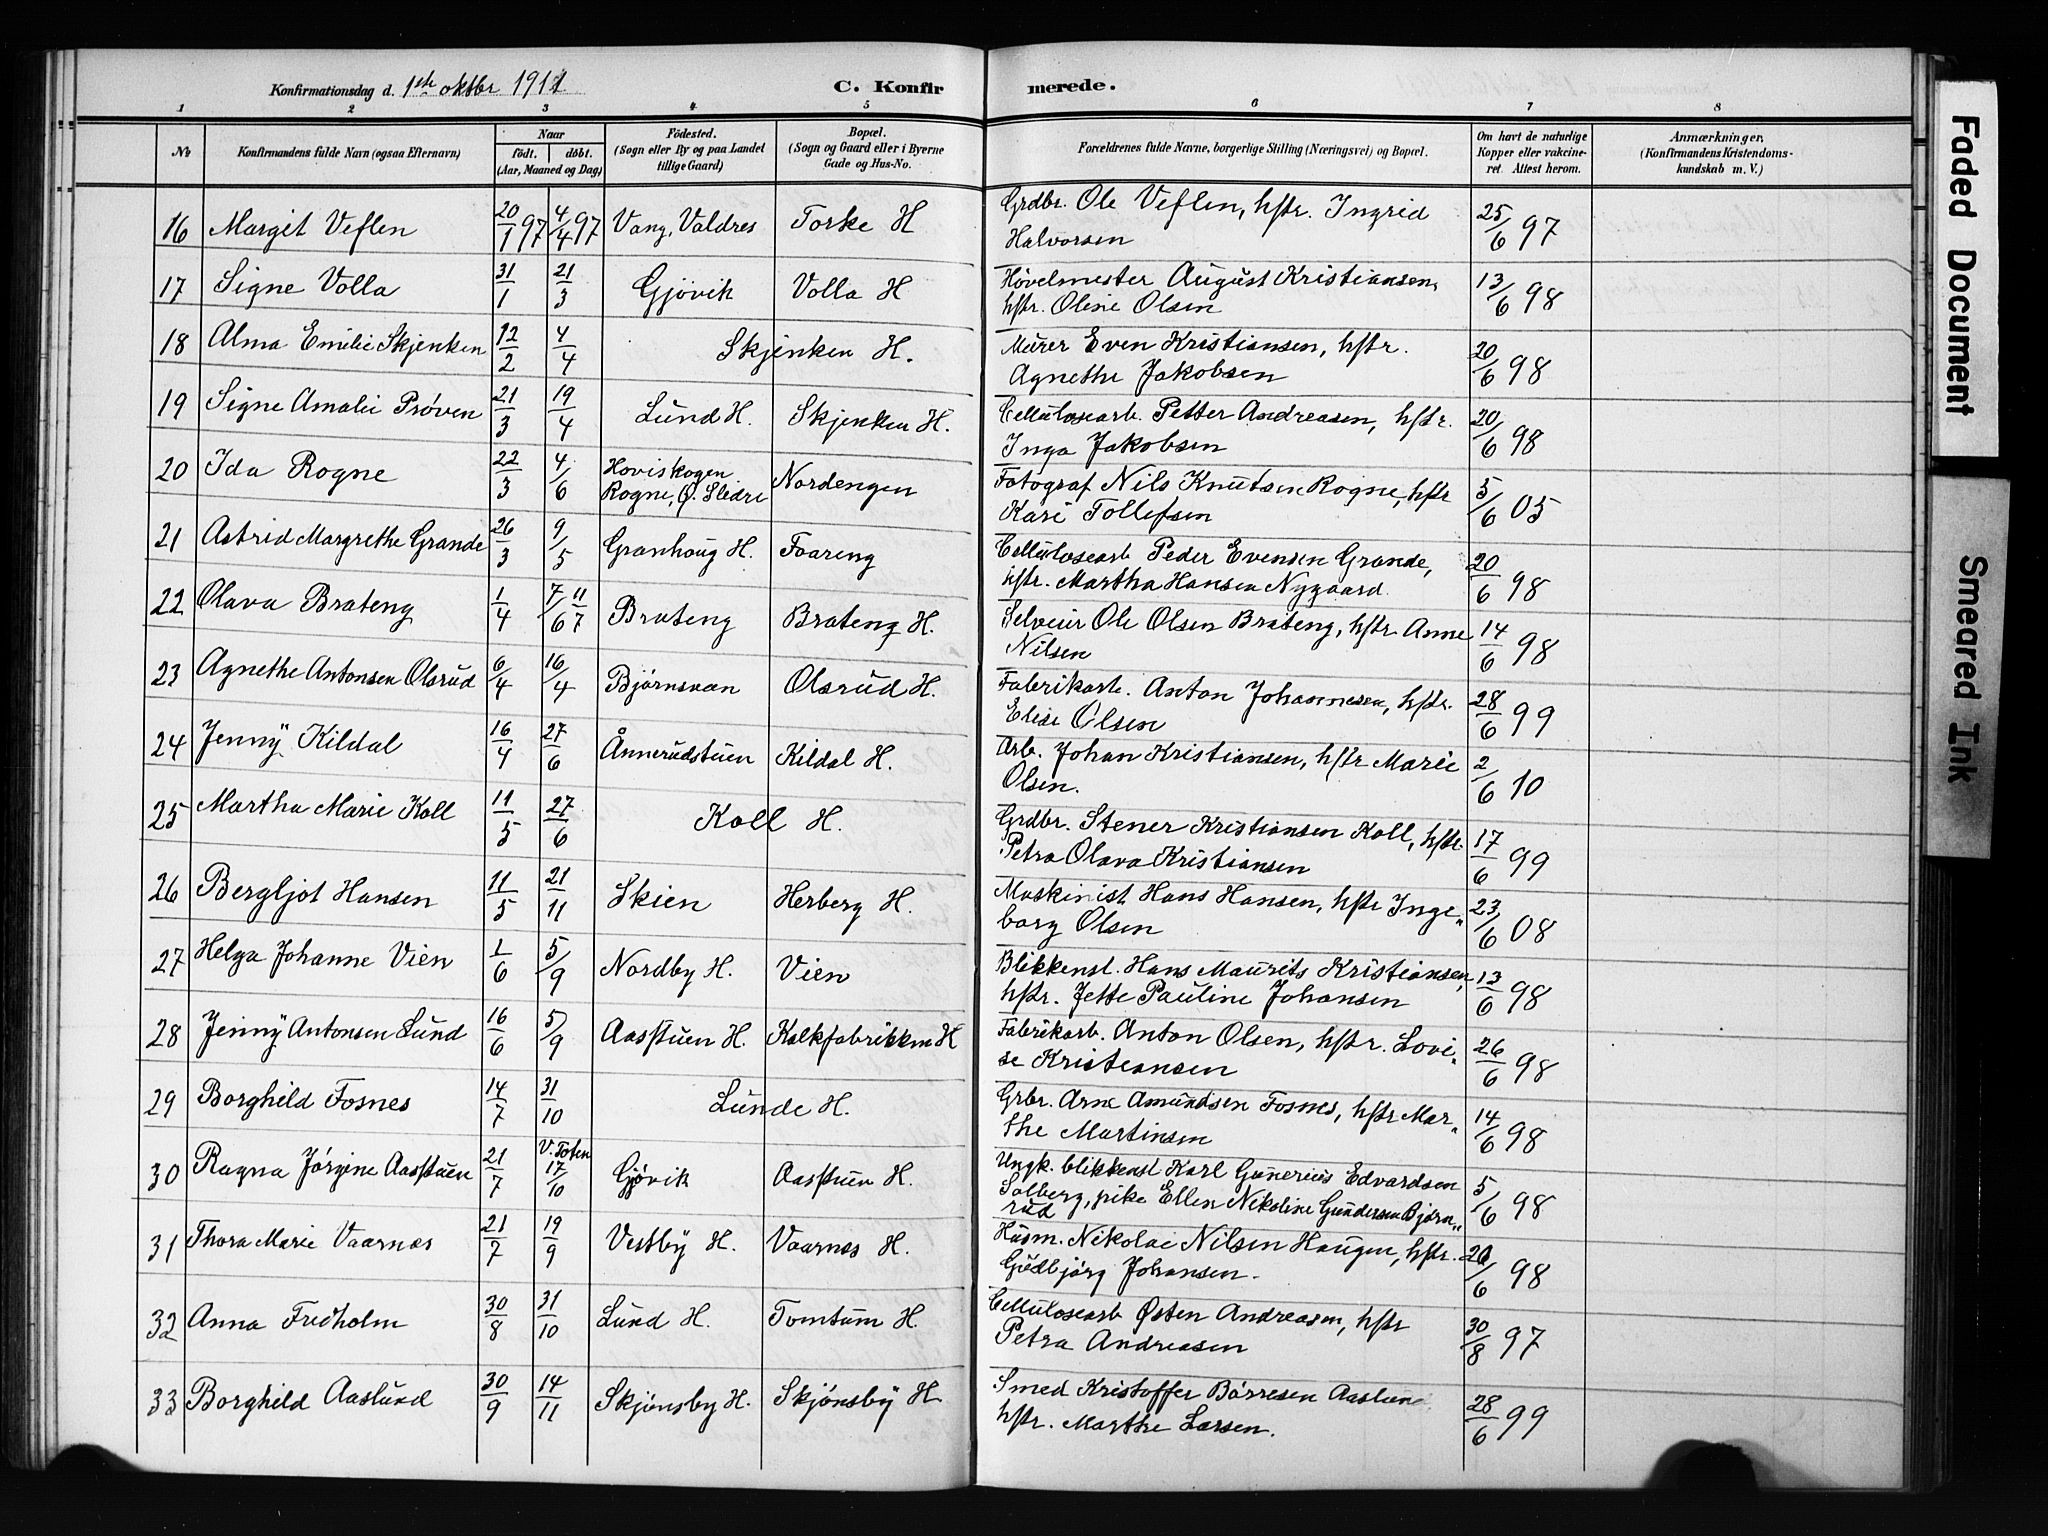 Konfirmationsdag d. 1ste oktbr 1911 C. Konfirmerede.
1 2 3 4 5 6 7 8
No Konfirmandens fulde Navn (ogsaa Efternavn) Naar født. døbt. (Aar, Maaned og Dag) Fødested. (Sogn eller By og paa Landet tillige Gaard) Bopæl. (Sogn og Gaard eller i Byerne Gade og Hus-No. Forældrenes fulde Navne, borgerlige Stilling (Næringsvei) og Bopæl. Om havt de naturlige Kopper eller vakcineret. Attest herom. Anmærkninger, (Konfirmandens Kristendomskundskab m. V.)
16 Margit Veflen 20/1 97 4/4 97 Vang, Valdres Torke H Grdbr. Ole Veflen, hstr. Ingrid 25/6 97
Halvorsen
17 Signe Volla 31/1 21/3 Gjøvik Volla H Høvelmester August Kristiansen, 13/6 98
hstr. Oline Olsen
18 Alma Emilie Skjenken 12/2 4/4 Skjenken H. Murer Even Kristiansen, hstr. 20/6 98
Agnethe Jakobsen
19 Signe Amalie Prøven 21/3 19/4 Lund H. Skjenken H. Cellulosearb. Petter Andreasen, hstr. 20/6 98
Inga Jakobsen
20 Ida Rogne 22/3 4/6 Hoviskogen Rogne, Ø. Slidre Nordengen Fotograf Nils Knutsen Rogne, hstr 5/6 05
Kari Tollefsen
21 Astrid Margrethe Grande 26/3 9/5 Granhoug H. Foareng Cellulosearb Peder Evensen Grande, 20/6 98
hstr. Martha Hansen Nygaard
22 Olava Brateng 1/4 7/6 11/7 Brateng Brateng H. Selveier Ole Olsen Brateng, hstr. Anne 14/6 98
Nilsen
23 Agnethe Antonsen Olsrud 6/4 16/4 Bjørnsvean Olsrud H. Fabrikarb. Anton Johannesen, hstr. 28/6 99
Elise Olsen
24 Jenny Kildal 16/4 27/6 Ånnerudstuen Kildal H. Arb. Johan Kristiansen, hstr Marie 2/6 10
Olsen.
25 Martha Marie Koll 11/5 27/6 Koll H. Grdbr. Stener Kristiansen Koll, hstr. 17/6 99
Petra Olava Kristiansen
26 Bergljot Hansen 11/5 21/11 Skien Herberg H. Maskinist Hans Hansen, hstr Inge- 23/6 08
borg Olsen
27 Helga Johanne Vien 1/6 5/9 Nordby H. Vien Blikkensl. Hans Maurits Kristiansen, 13/6 98
hstr. Jette Pauline Johansen
28 Jenny Antonsen Lund 16/6 5/9 Aasstuen H. Kalkfabrikken H Fabrikarb. Anton Olsen, hstr. Lovi- 26/6 98
se Kristiansen
29 Borghild Fosnes 14/7 31/10 Lunde H. Grbr. Arne Amundsen Fosnes, hstr Mar- 14/6 98
the Martinsen
30 Ragna Jørgine Aasstuen 21/7 V. Toten 17/10 Gjøvik Aasstuen H. Ungk. blikkensl Karl Gunerius Edvardsen 5/6 98
Solberg, pike Ellen Nikoline Gundersen Bjørn-
rud
31 Thora Marie Vaarnes 21/7 19/9 Vestby H. Vaarnes H. Husm. Nikolai Nilsen Haugen, hstr. 20/6 98
Gudbjørg Johansen.
32 Anna Fredholm 30/8 31/10 Lund H. Tomtum H. Cellulosearb Østen Andreasen, hstr 30/8 97
Petra Andreasen
33 Borghild Aaslund 30/9 14/11 Skjønsby H. Skjønsby H Smed Kristoffer Børresen Aaslund 28/6 99
hstr. Marthe Larsen.
Faded Document
Smeared Ink